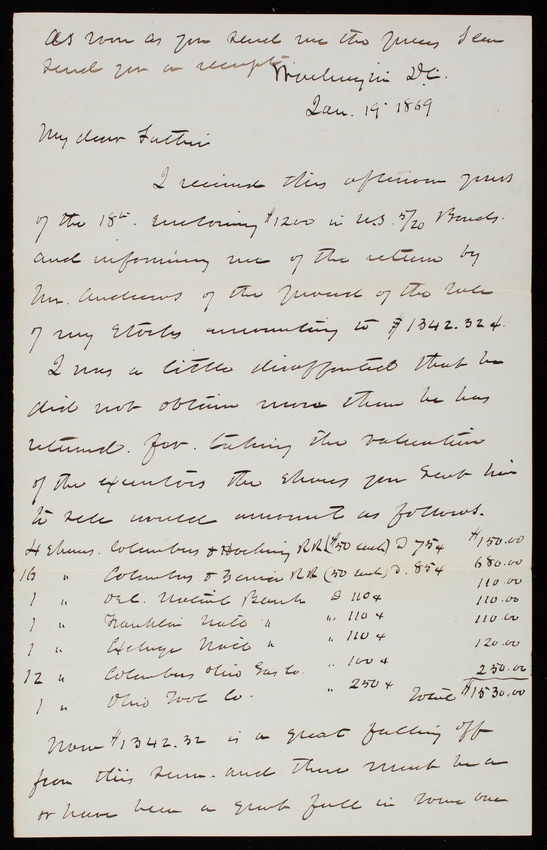 As soon as you send me the proxy I can
send you a receipt.
Washington D.C.
Jan. 19 1869
My dear Father
I received this afternoon yours
of the 18th. Enclosing $1200 in U.S. 5/20 Bonds.
and informing me of the return by
Mr. Andrews of the proceeds of the sale
of my Stocks amounting to $1342.32¢.
I was a little disappointed that he
did not obtain more than he has
returned. for. taking the valuation
of the executors the shares you sent him
to sell would amount as follows.
4 Shares. Columbus & Hocking RR ($50 each) @ 75¢ $150.00
16 " Columbus & Xenia RR (50 each) @. 85¢ 680.00
1 " Del. National Bank @ 110¢ 110.00
1 " Franklin Natl " " 110¢ 110.00
1 " Exchange Natl " " 110¢ 110.00
12 " Columbus Ohio Gas Co. " 100¢ 120.00
1 " Ohio Tool Co. " 250¢ 250.00
Total $1530.00
Now $1342.32 is a great falling off
from this sum. and there must be a
or have been a great fall in some one